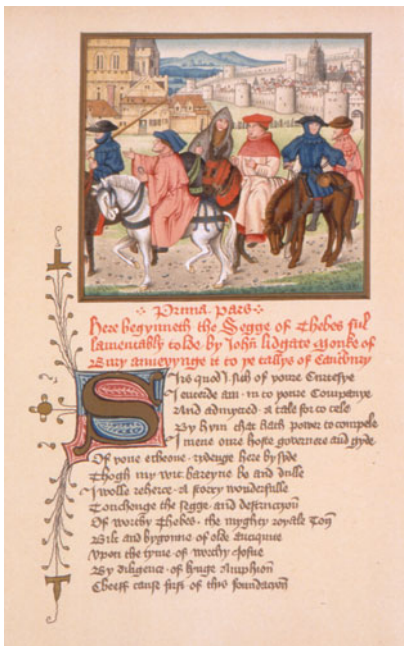 Prima pars
Here begynneth the Segge of Thebes ful
lamentably tolde by John Lidgate monke of
Bury annexynge it to þe tallys of Canterbury
Sirs quod I sith of youre Curtesye
I entrede am in to youre Companye
And admytted a tale for to tele
By hym that hath power to compele
I mene oure hoste governere and gyde
Of yone echeone rydenge here by syde
Thogh my wit bareyne be and dulle
I wolle reherce a story wonderfulle
Touchenge the segge and destruccyoun
Of worthy Thebes the myghty royale Toun
Bilt and bygonne of olde antiquite
Upon the tyme of worthy Josue
By diligence of kynge Amphion
Cheeff cause first of this foundacyon